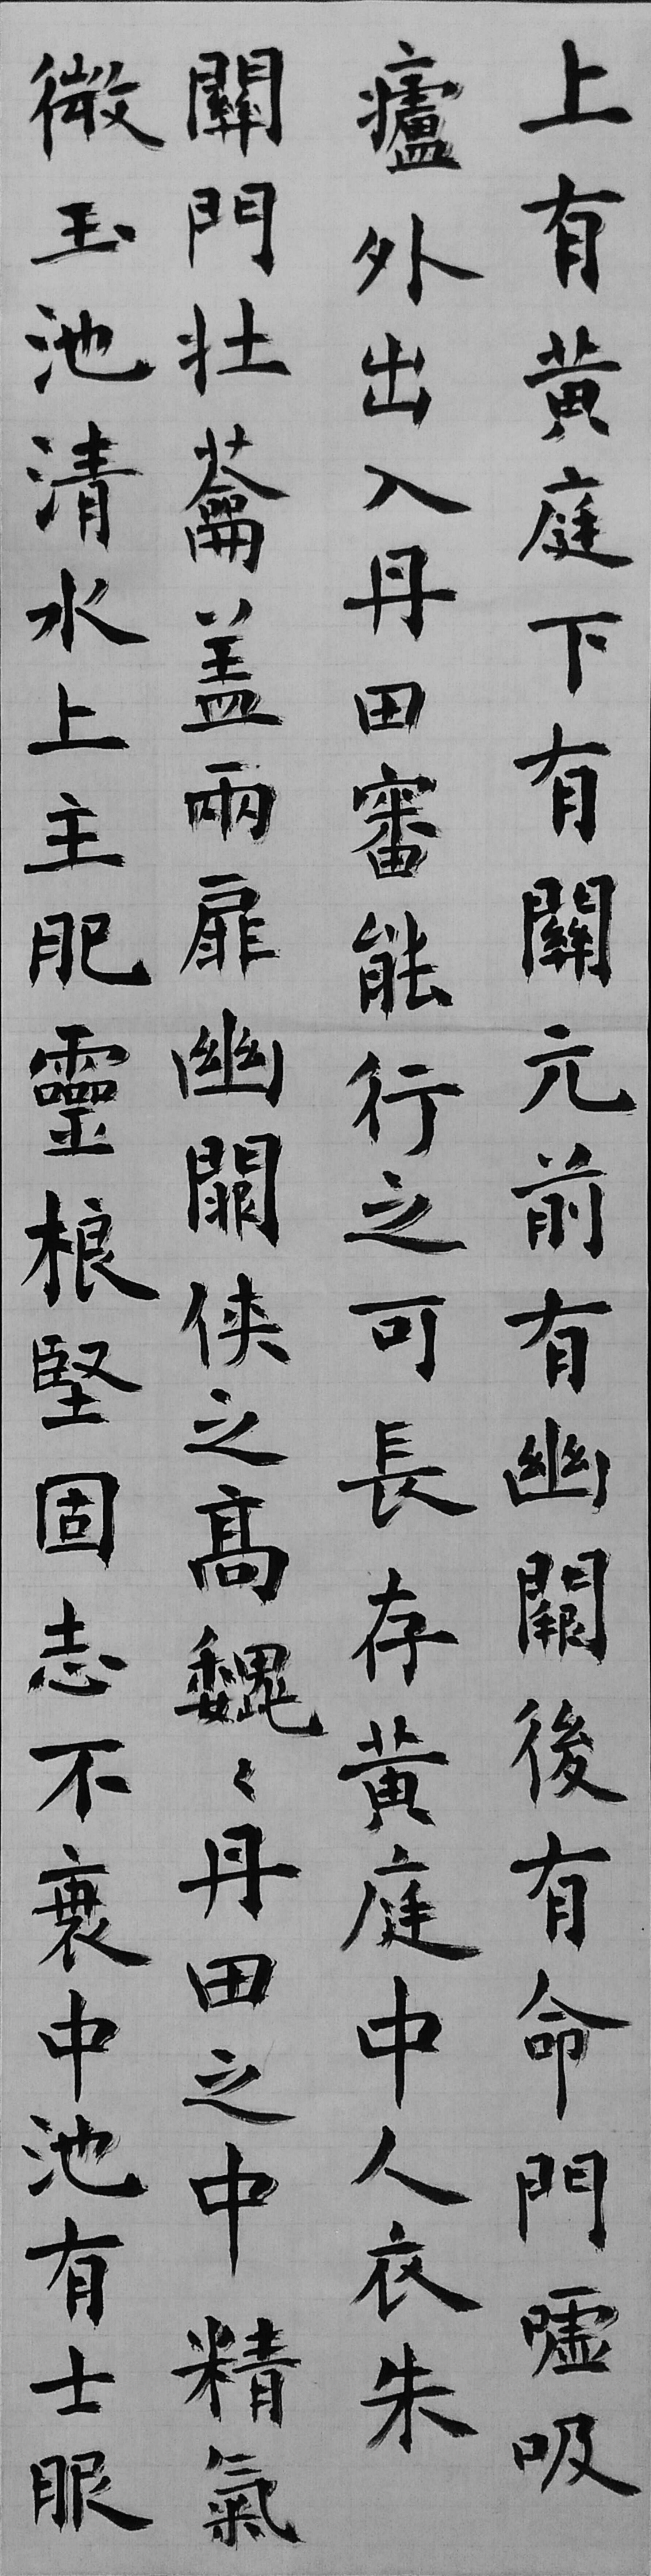 上有黃庭下有關元前有幽闕後有命門噓吸
廬外出入丹田審能行之可長存黃庭中人衣朱
關門壯蘥蓋兩扉幽闕俠之高巍〻丹田之中精氣
微玉池清水上主肥靈根堅固志不衰中池有士服